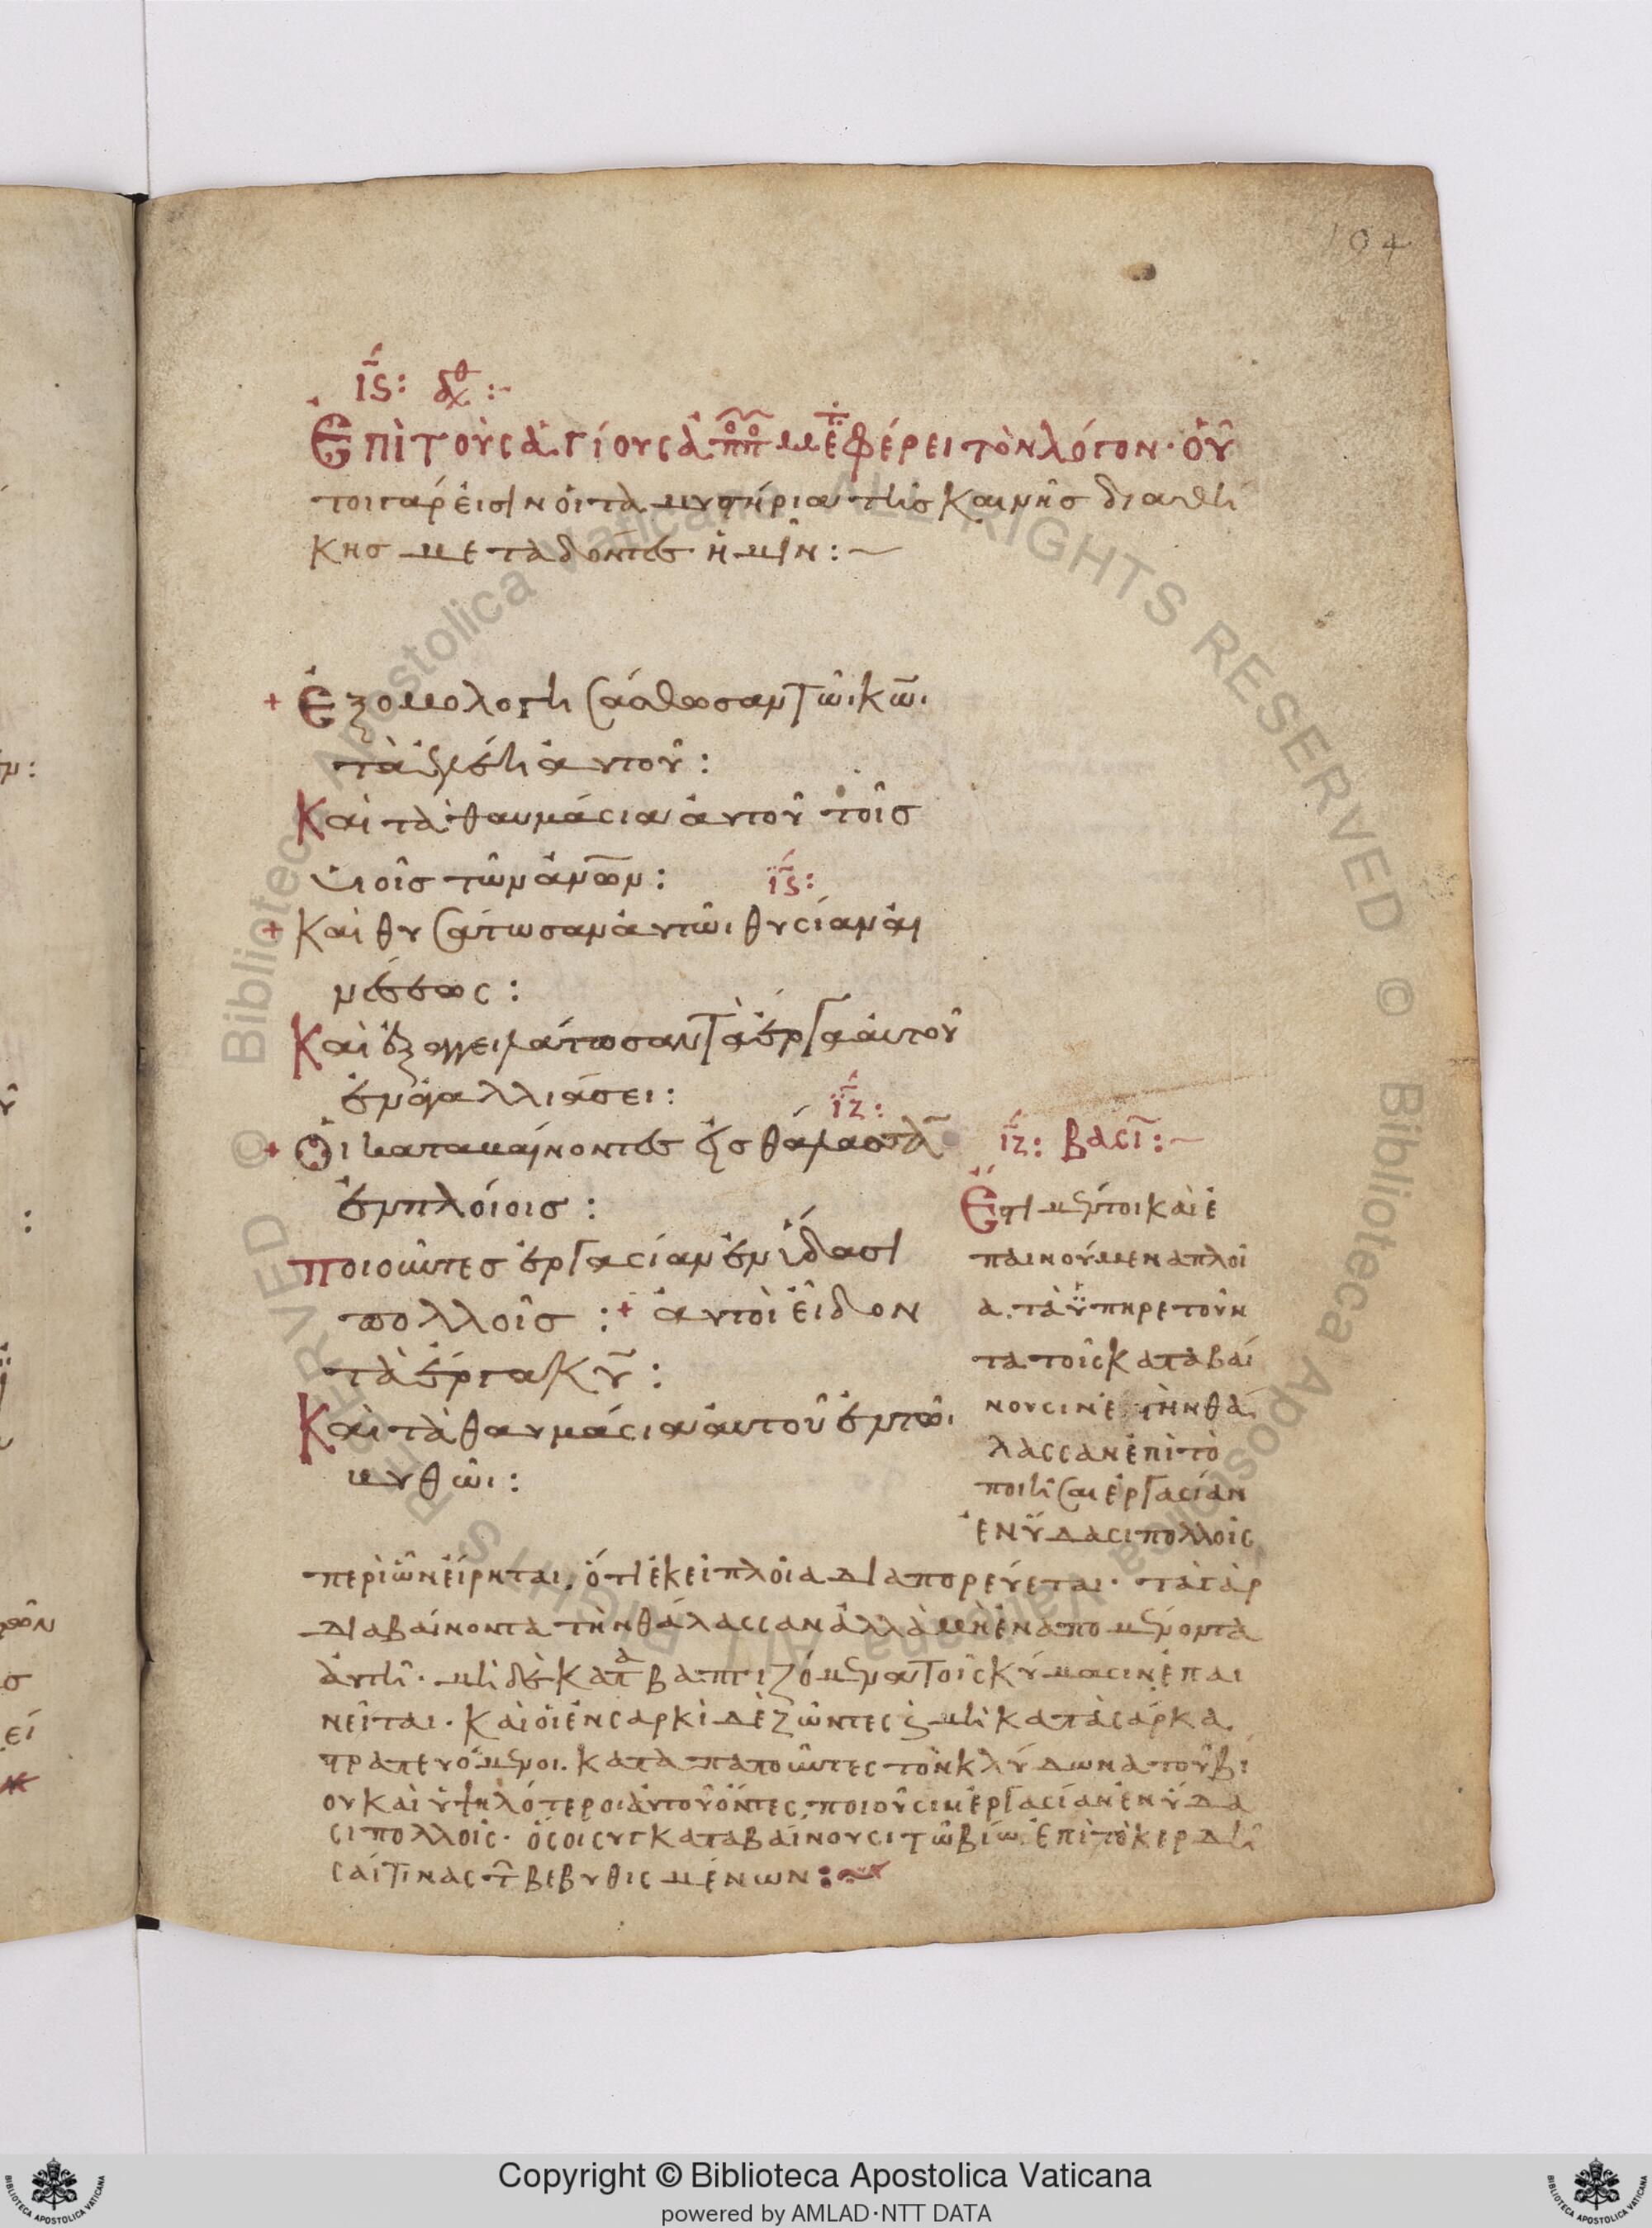 104
ιϛ: Διχθ :~
Ἐπὶ τοὺς ἁγίους ἀππ μετ̈ φέρει τὸν λόγον· οὗ
τοι γάρ εἰσιν οἱ τὰ μυστήρια τῆς καινῆς διαθή
κης μεταδόντες ἡμῖν:~
+ Ἐξομολογησάσθωσαν τῶι κῶι
τὰ ἐλέη αὐτοῦ:
Καὶ τὰ θαυμάσια αὐτοῦ τοῖς
υἱοῖς τῶν ἀνων:
ιϛ:
+ Καὶ θυσάτωσαν αὐτῶι θυσίαν αἰ
νέσεως:
Καὶ ἐξαγγειλάτωσαν τὰ ἔργα αὐτοῦ
ἐν ἀγαλλιάσει:
ιζ:
+ Οἱ καταβαίνοντες εἰς θάλασσα
ἐν πλοίοις:
Ποιοῦντες ἐργασίαν ἐν ὕδασι
πολλοῖς: + αὐτοὶ εἶδον
τὰ ἔργα κυ:
Καὶ τὰ θαυμάσια αὐτοῦ ἐν τῶι
βυθῶι:
ιζ: βασι:~
Ἔστι μέντοι καὶ ἐ
παινούμενα πλοῖ
α. τὰ ὑπηρετοῦν
τα τοῖς καταβαί
νουσιν ἐ τὴν θά
λασσαν ἐπὶ τὸ
ποιῆσαι ἐργασίαν
ἐν ὕδασι πολλοῖς
περὶ ὧν εἴρηται, ὅτι ἐκεῖ πλοῖα διαπορεύεται· τὰ γὰρ
διαβαίνοντα τὴν θάλασσαν ἀλλὰ μὴ ἐναπομένοντα
αὐτῆ· μὴ δὲ καταβαπτιζόμενα τοῖς κύμασιν ἐπαι
νεῖται· καὶ οἱ ἐν σαρκὶ δὲ ζῶντες ϛ μὴ κατὰ σάρκα
στρατευόμενοι. καταπατοῦντες τὸν κλύδωνα τοῦ βί
ου καὶ ὑψηλότεροι αὐτοῦ ὄντες, ποιοῦσιν ἐργασίαν ἐν ὕδα
σι πολλοῖς· ὅσοι συγκαταβαίνουσι τῶ βίω ἐπὶ τὸ κερδῆ
σαί τινας τ βεβυθισμένων:~
Copyright © Biblioteca Apostolica Vaticana
powered by AMLAD·NTT DATA